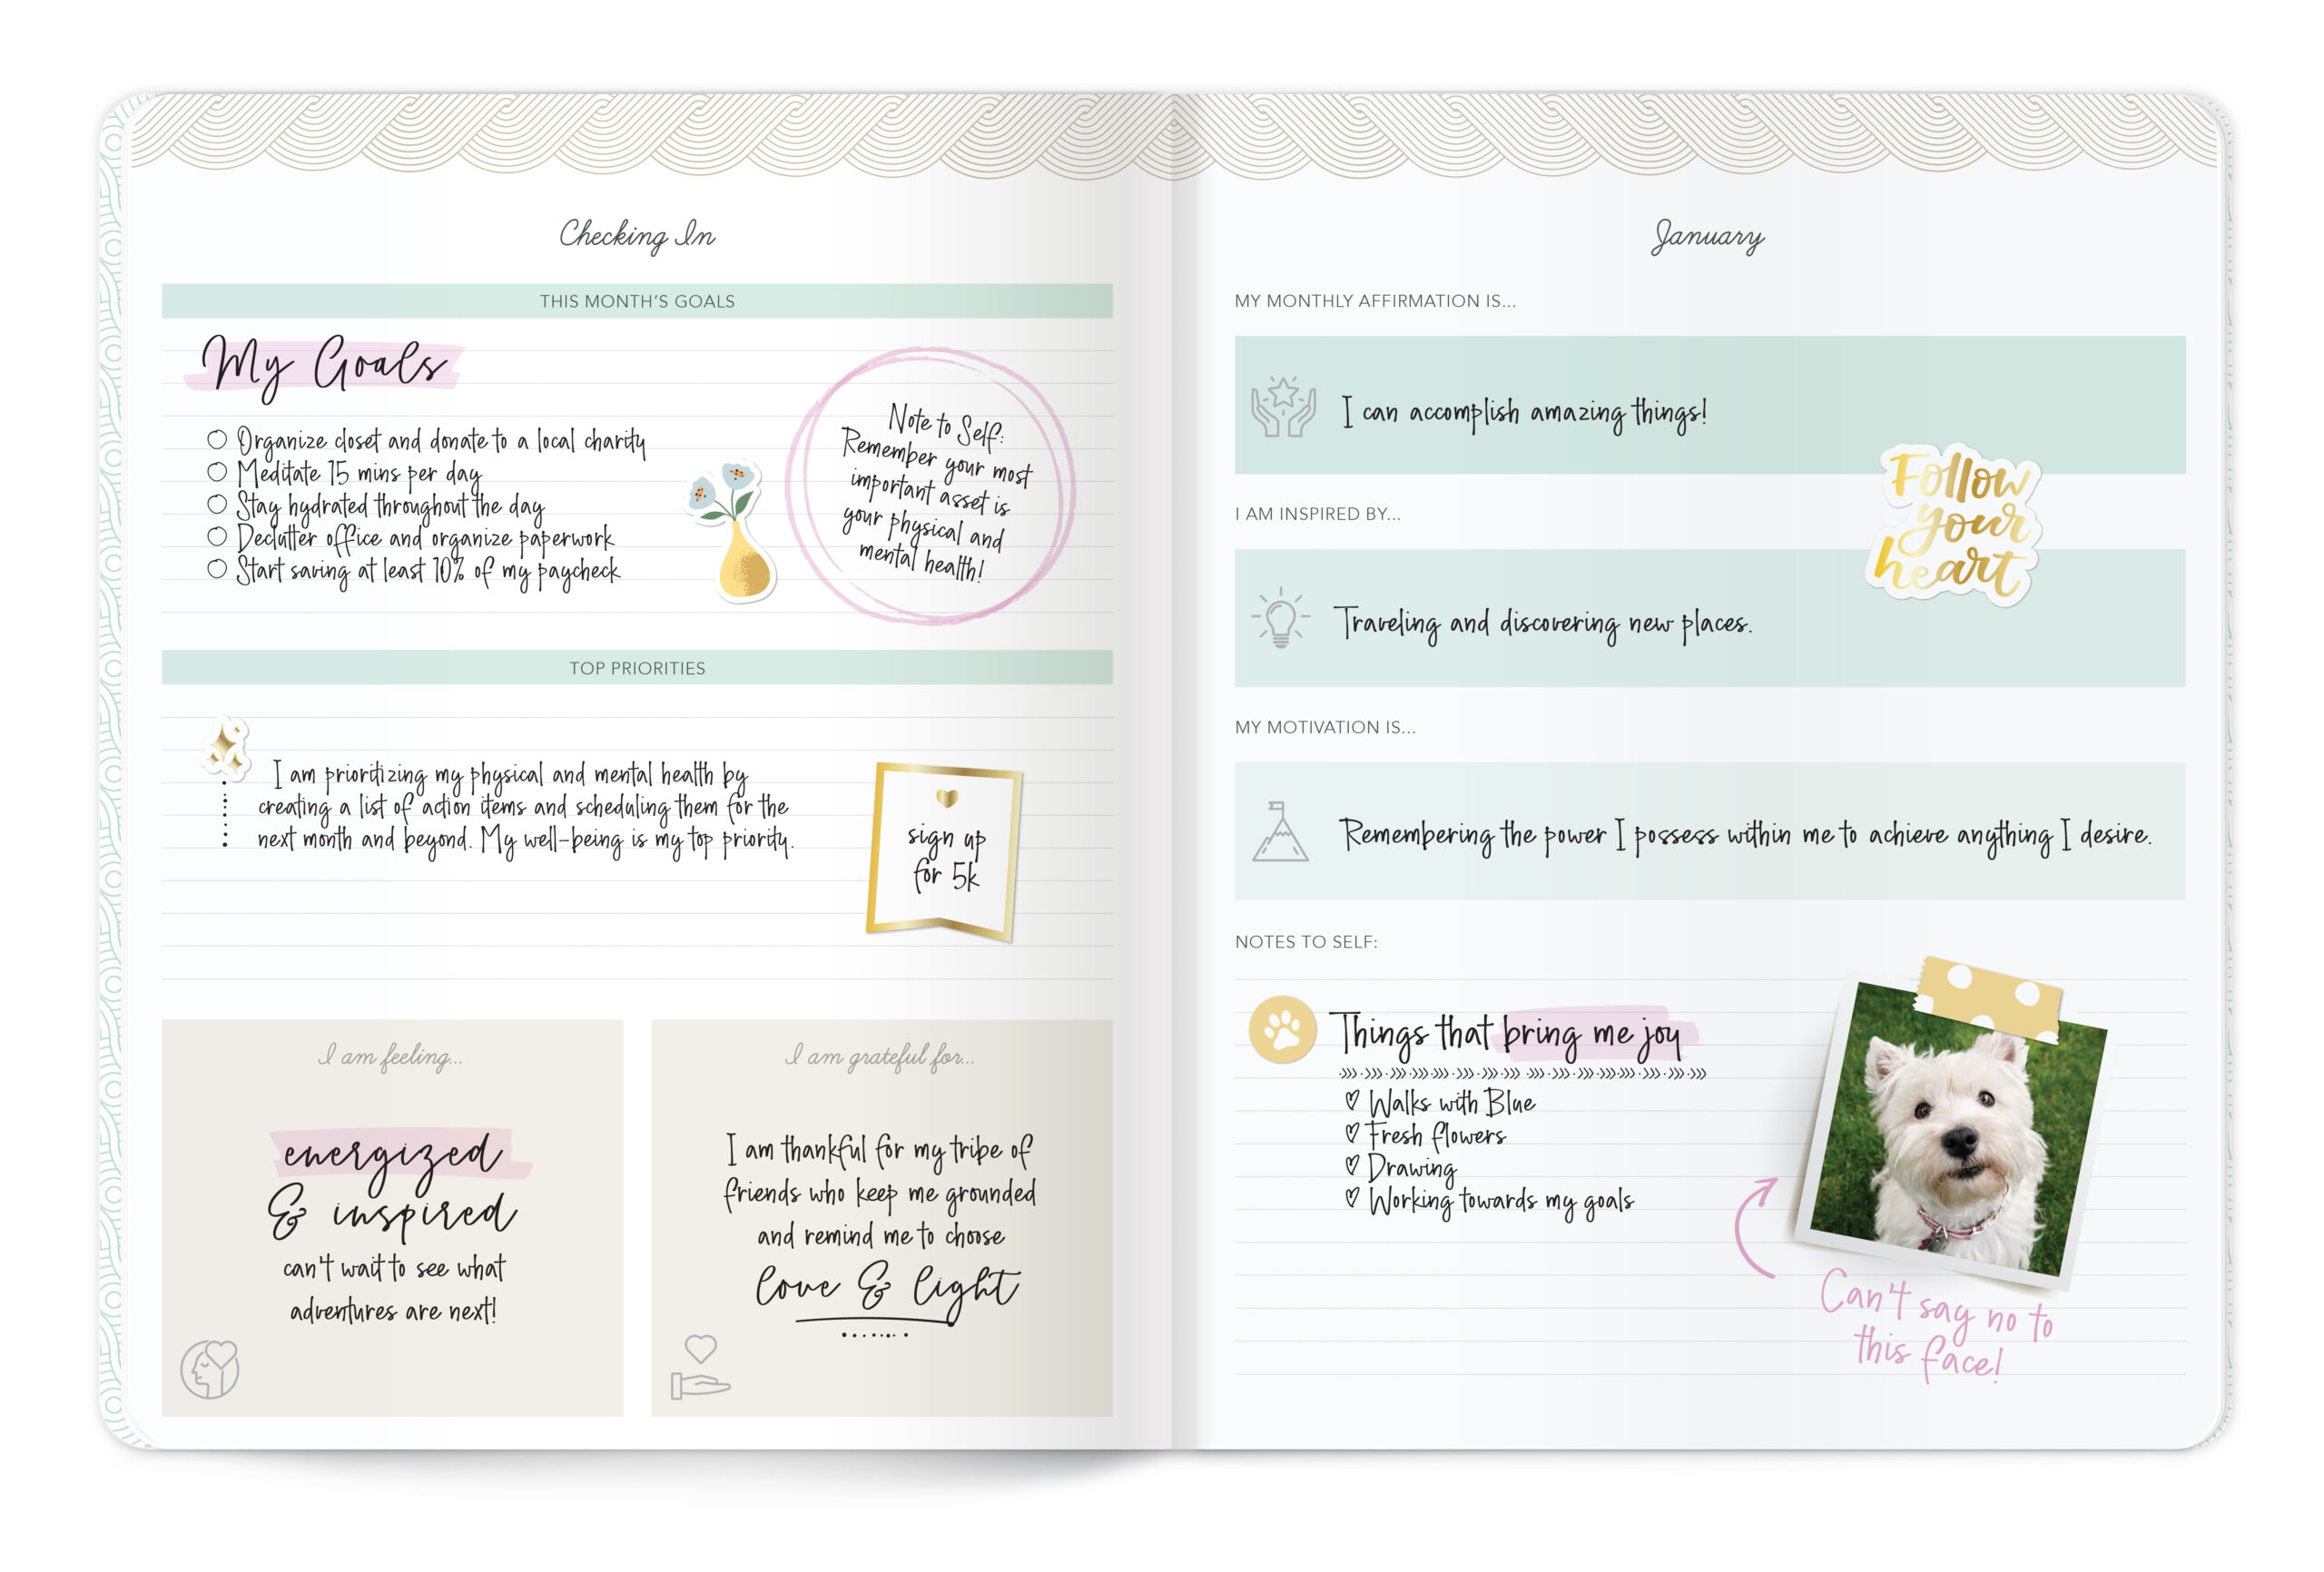 Checking In
THIS MONTH'S GOALS
My Goals
Organize closet and donate to a local charity
Meditate 15 mins per day
Stay hydrated throughout the day
Declutter office and organize paperwork
Start saving at least 10% of my paycheck
Note to Self:
Remember your most
important asset is
your physical and
mental health!
TOP PRIORITIES
I am prioritizing my physical and mental health by
creating a list of action items and scheduling them for the
next month and beyond. My well-being is my top priority.
sign up
for 5k
I am feeling...
energized
& inspired
can't wait to see what
adventures are next!
I am grateful for...
I am thankful for my tribe of
friends who keep me grounded
and remind me to choose
love & light
January
MY MONTHLY AFFIRMATION IS...
I can accomplish amazing things!
Follow
your
heart
I AM INSPIRED BY...
Traveling and discovering new places.
MY MOTIVATION IS...
Remembering the power I possess within me to achieve anything I desire.
NOTES TO SELF:
Things that bring me joy
Walks with Blue
Fresh flowers
Drawing
Working towards my goals
Can't say no to
this face!